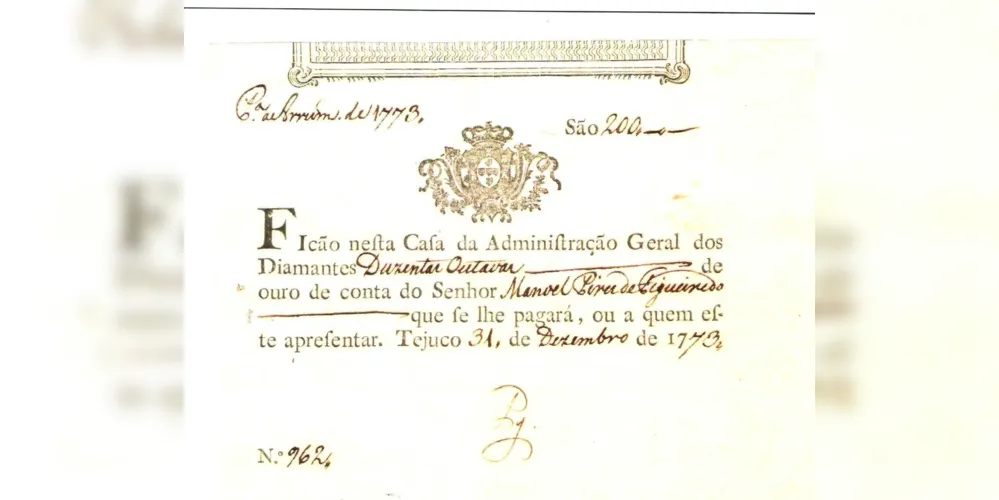 P.ª de Arrum. de 1773.
São 200.
FIcão neſta Caſa da Adminiſtração Geral dos
Diamantes Duzentas Outavas de
ouro de conta do Senhor Manoel Pires de Figueiredo
que ſe lhe pagará, ou a quem eſ-
te apreſentar. Tejuco 31, de Dezembro de 1773.
N.º 962.